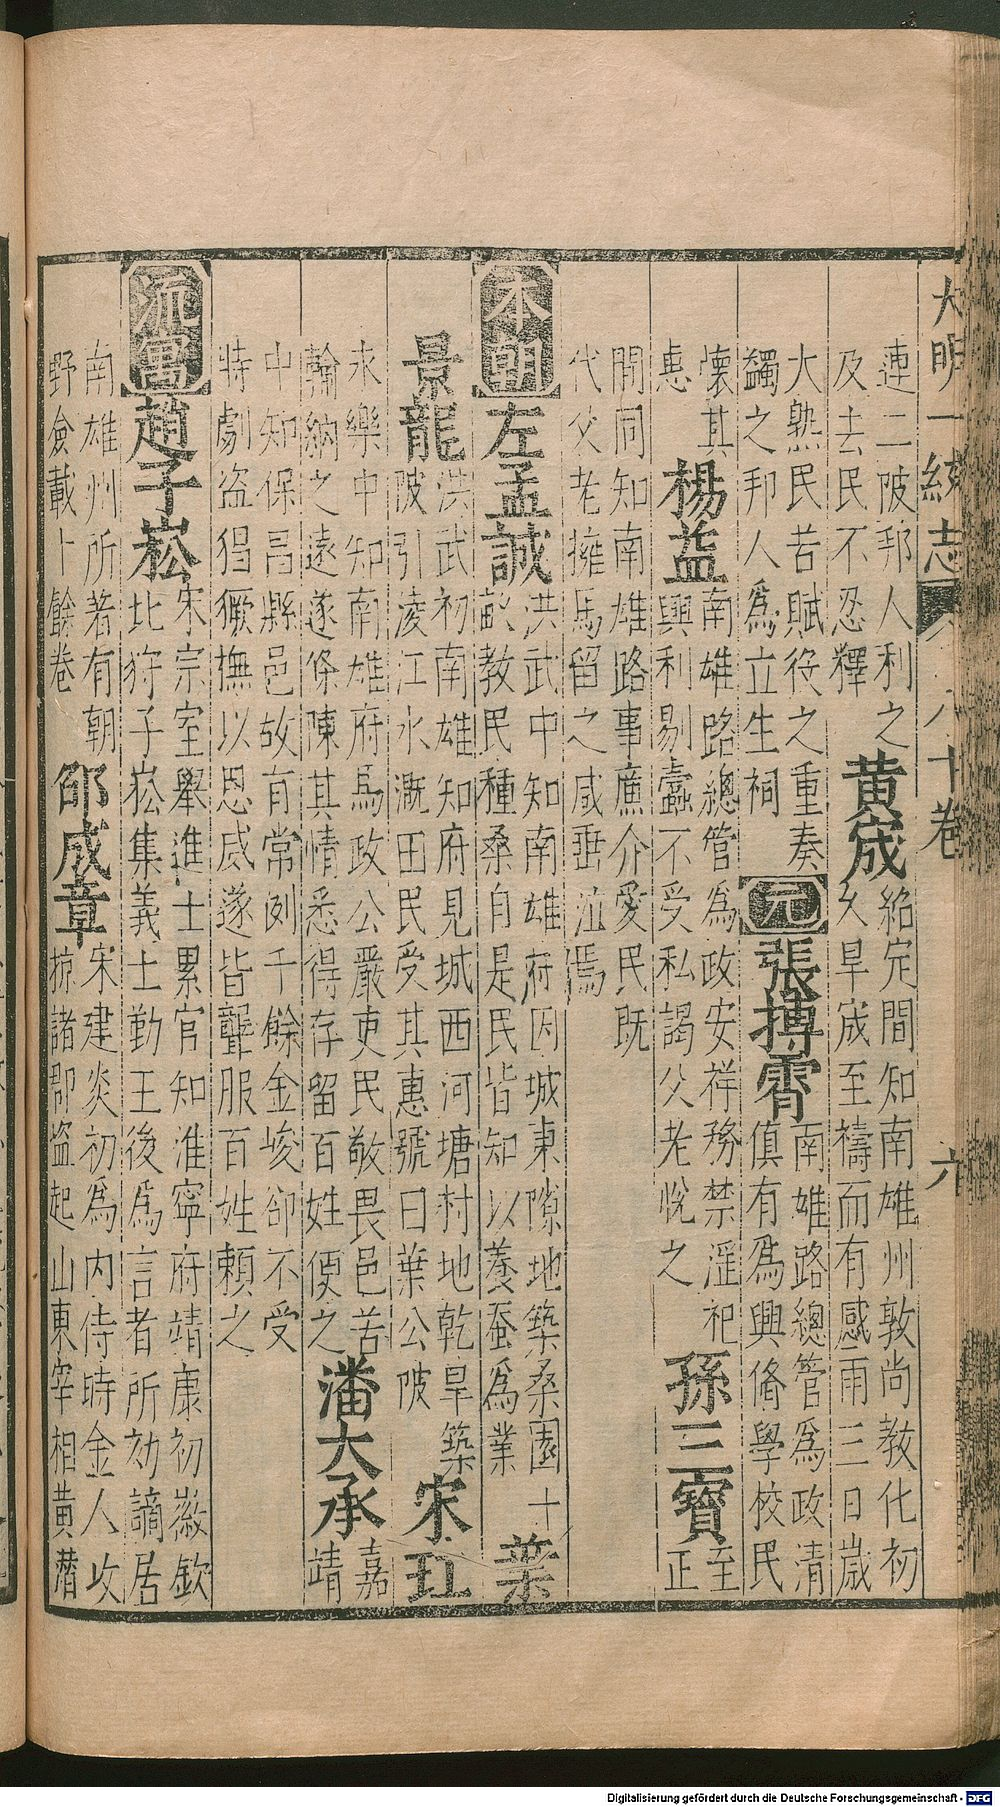 大明一統志 八十卷 六
連二陂郡人利之
及去民不忍釋
黃宬
紹定間知南雄州敦尚教化初
久旱宬至禱而有感雨三日歲
大熟民苦賦役之重奏
蠲之邦人為立生祠
元
張搏霄
南雄路總管為政清
慎有為興脩學校民
懷其
惠
楊益
南雄路總管為政安祥務禁淫祀
興利剔蠹不受私謁父老悅之
孫三寶
至
正
間同知南雄路事廉介愛民既
代父老擁馬留之咸垂泣焉
本朝
左孟誠
洪武中知南雄府因城東隙地築桑園十
畝教民種桑自是民皆知以養蚕為業
葉
景龍
洪武初南雄知府見城西河塘村地乾旱築
陂引淩江水溉田民受其惠號曰葉公陂
宋玒
永樂中知南雄府為政公嚴吏民敬畏邑苦
輸納之遠遂條陳其情悉得存留百姓便之
潘大承
嘉
靖
中知保昌縣邑故有常例千餘金峻卻不受
時劇盜猖獗撫以恩威遂皆讋服百姓賴之
流寓
趙子崧
宋宗室舉進士累官知淮寧府靖康初徽欽
北狩子崧集義士勤王後為言者所劾謫居
南雄州所著有朝
野僉載十餘卷
邵成章
宋建炎初為內侍時金人攻
掠諸郡盜起山東宰相黃潛
Digitalisierung gefördert durch die Deutsche Forschungsgemeinschaft - DFG